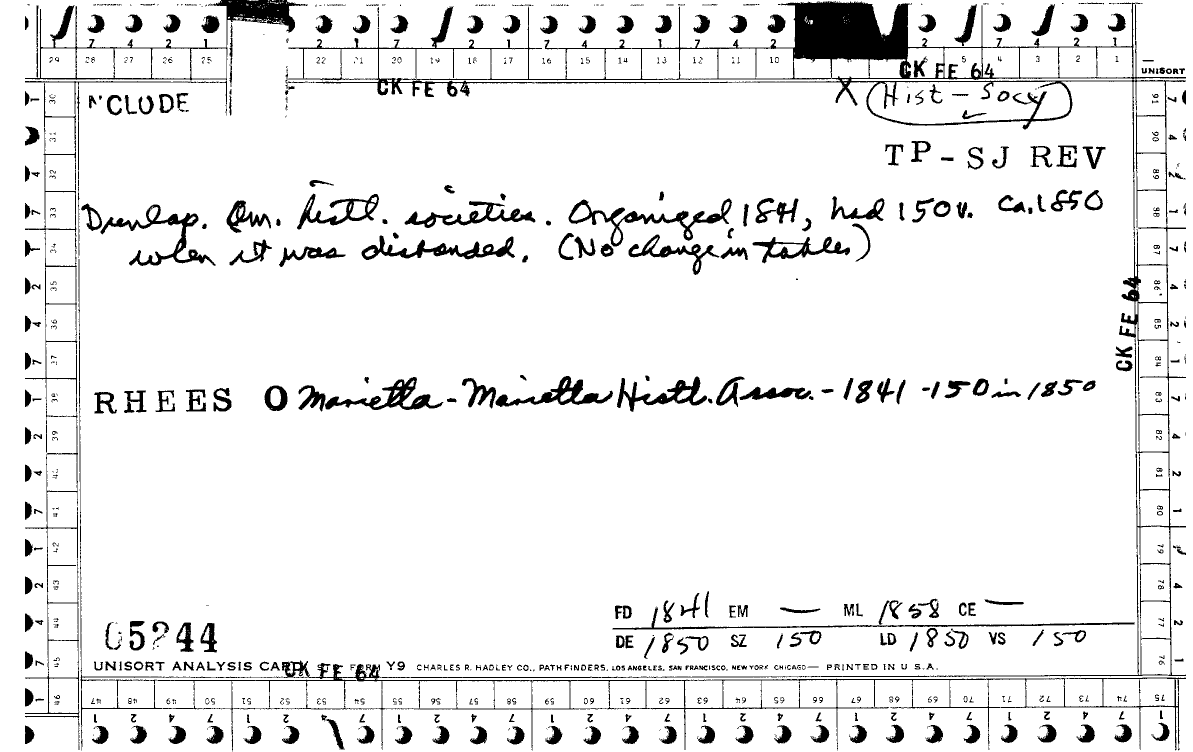 7 4 2 1 2 1 7 4 2 1 7 4 2 1 7 4 2 2 1 7 4 2 1
29 28 27 26 25 22 21 20 19 18 17 16 15 14 13 12 11 10 5 4 3 2 1
CK FE 64
CK FE 64
UNISORT
CLUDE
X Hist - Socy
TP - SJ REV
Dunlap. Am. histl. societies. Organized 1841, had 150v. ca. 1850
when it was disbanded. (No change in tables)
CK FE 64
RHEES O Marietta - Marietta Histl. Assoc. - 1841 - 150 in 1850
FD 1841 EM — ML 1858 CE —
DE 1850 SZ 150 LD 1850 VS 150
05244
UNISORT ANALYSIS CARD FORM Y9 CHARLES R. HADLEY CO., PATHFINDERS, LOS ANGELES, SAN FRANCISCO, NEW YORK CHICAGO — PRINTED IN U S.A.
CK FE 64
47 48 49 50 51 52 53 54 55 56 57 58 59 60 61 62 63 64 65 66 67 68 69 70 71 72 73 74 75